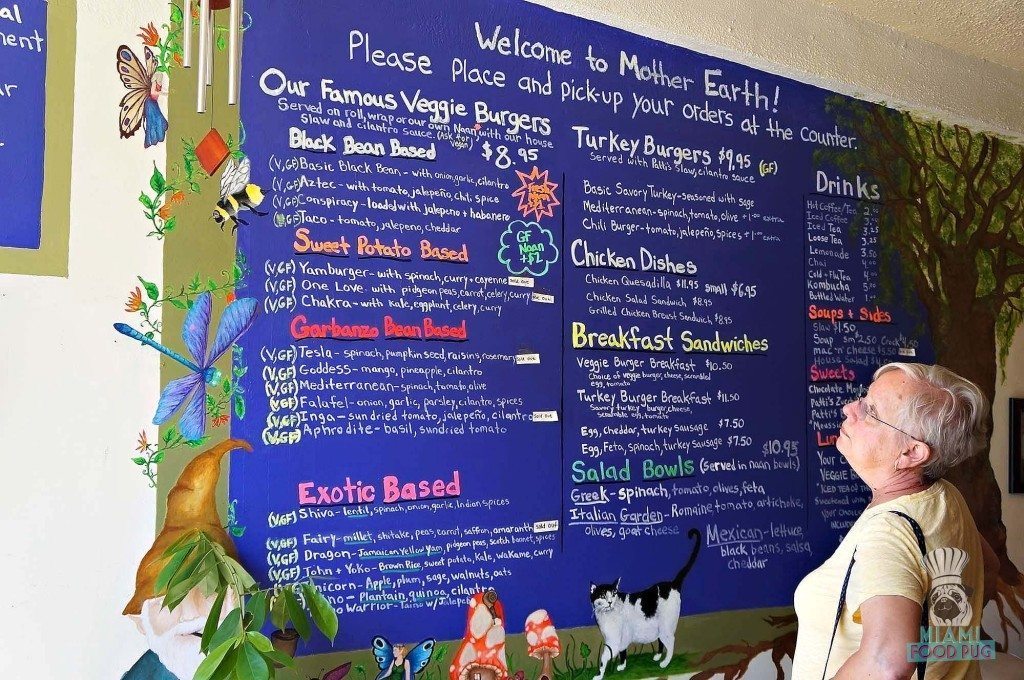 al
ment
r
Welcome to Mother Earth!
Please Place and pick-up your orders at the counter.
Our Famous Veggie Burgers
Served on roll, wrap or our own Naan with our house
slaw and cilantro sauce. (Ask for vegan)
$8.95
Black Bean Based
(V,GF) Basic Black Bean - with onion, garlic, cilantro
(V,GF) Aztec - with tomato, jalepeño, chili, spice
(V,GF) Conspiracy - loaded with jalapeno + habanero
GF Taco - tomato, jalapeno, cheddar
GF
Naan
+$1
Sweet Potato Based
(V,GF) Yamburger - with spinach, curry + cayenne sold out
(V,GF) One Love - with pigeon peas, carrot, celery, curry sold out
(V,GF) Chakra - with kale, eggplant, celery, curry
Garbanzo Bean Based
(V,GF) Tesla - spinach, pumpkin seed, raisins, rosemary sold out
(V,GF) Goddess - mango, pineapple, cilantro
(V,GF) Mediterranean - spinach, tomato, olive
(V,GF) Falafel - onion, garlic, parsley, cilantro, spices
(V,GF) Inga - sundried tomato, jalapeño, cilantro sold out
(V,GF) Aphrodite - basil, sundried tomato
Exotic Based
(V,GF) Shiva - lentil, spinach, onion, garlic, Indian spices
(V,GF) Fairy - millet, shitake, peas, carrot, saffron, amaranth sold out
(V,GF) Dragon - Jamaican Yellow Yam, pigeon peas, scotch bonnet, spices
(V,GF) John + Yoko - Brown Rice, sweet potato, kale, wakame, curry
Unicorn - Apple, plum, sage, walnuts, oats
Taino - Plantain, quinoa, cilantro
Taino Warrior - Taino w/
Turkey Burgers $9.95 (GF)
Served with Patti's slaw, cilantro sauce
Basic Savory Turkey - seasoned with sage
Mediterranean - spinach, tomato, olive +1.00 extra
Chili Burger - tomato, jalepeño, spices +1.00 extra
Chicken Dishes
Chicken Quesadilla $11.95 small $6.95
Chicken Salad Sandwich $8.95
Grilled Chicken Breast Sandwich $8.95
Breakfast Sandwiches
Veggie Burger Breakfast $10.50
Choice of veggie burger, cheese, scrambled
egg, tomato
Turkey Burger Breakfast $11.50
Savory turkey burger, cheese,
scrambled egg, tomato
Egg, Cheddar, turkey sausage $7.50
Egg, Feta, spinach, turkey sausage $7.50
$10.95
Salad Bowls (served in naan bowls)
Greek - spinach, tomato, olives, feta
Italian Garden - Romaine, tomato, artichoke,
olives, goat cheese
Mexican - lettuce
black beans, salsa,
cheddar
Drinks
Hot Coffee/Tea
Iced Coffee
Iced Tea 3.25
Loose Tea 3.25
Lemonade
Chai
Cold-Flu Tea
Kombucha
Bottled Water
Soups + Sides
Slaw $1.50
Soup Sm 2.50 Crock
mac 'n cheese
House Salad
Sweets
Chocolate
Patti's
Patti's
MIAMI
FOOD PUG